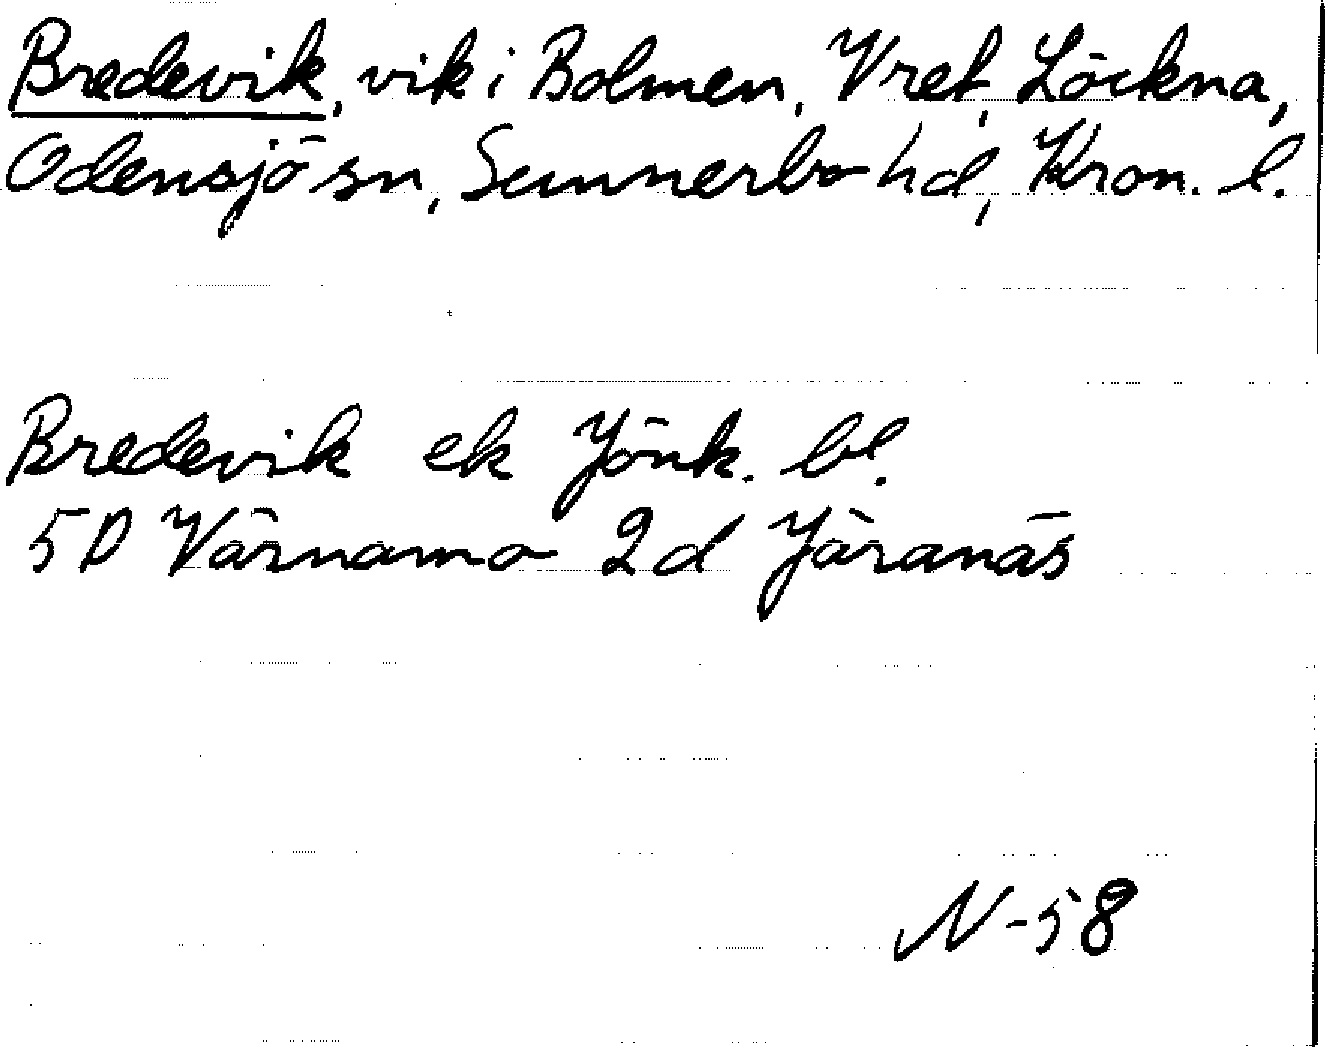 Bredevik, vik i Bolmen, Vret, Löckna,
Odensjö sn, Sunnerbo hd, Kron. l.
Bredevik ek Jönk. bl.
5D Värnamo 2d Järanäs
N-58